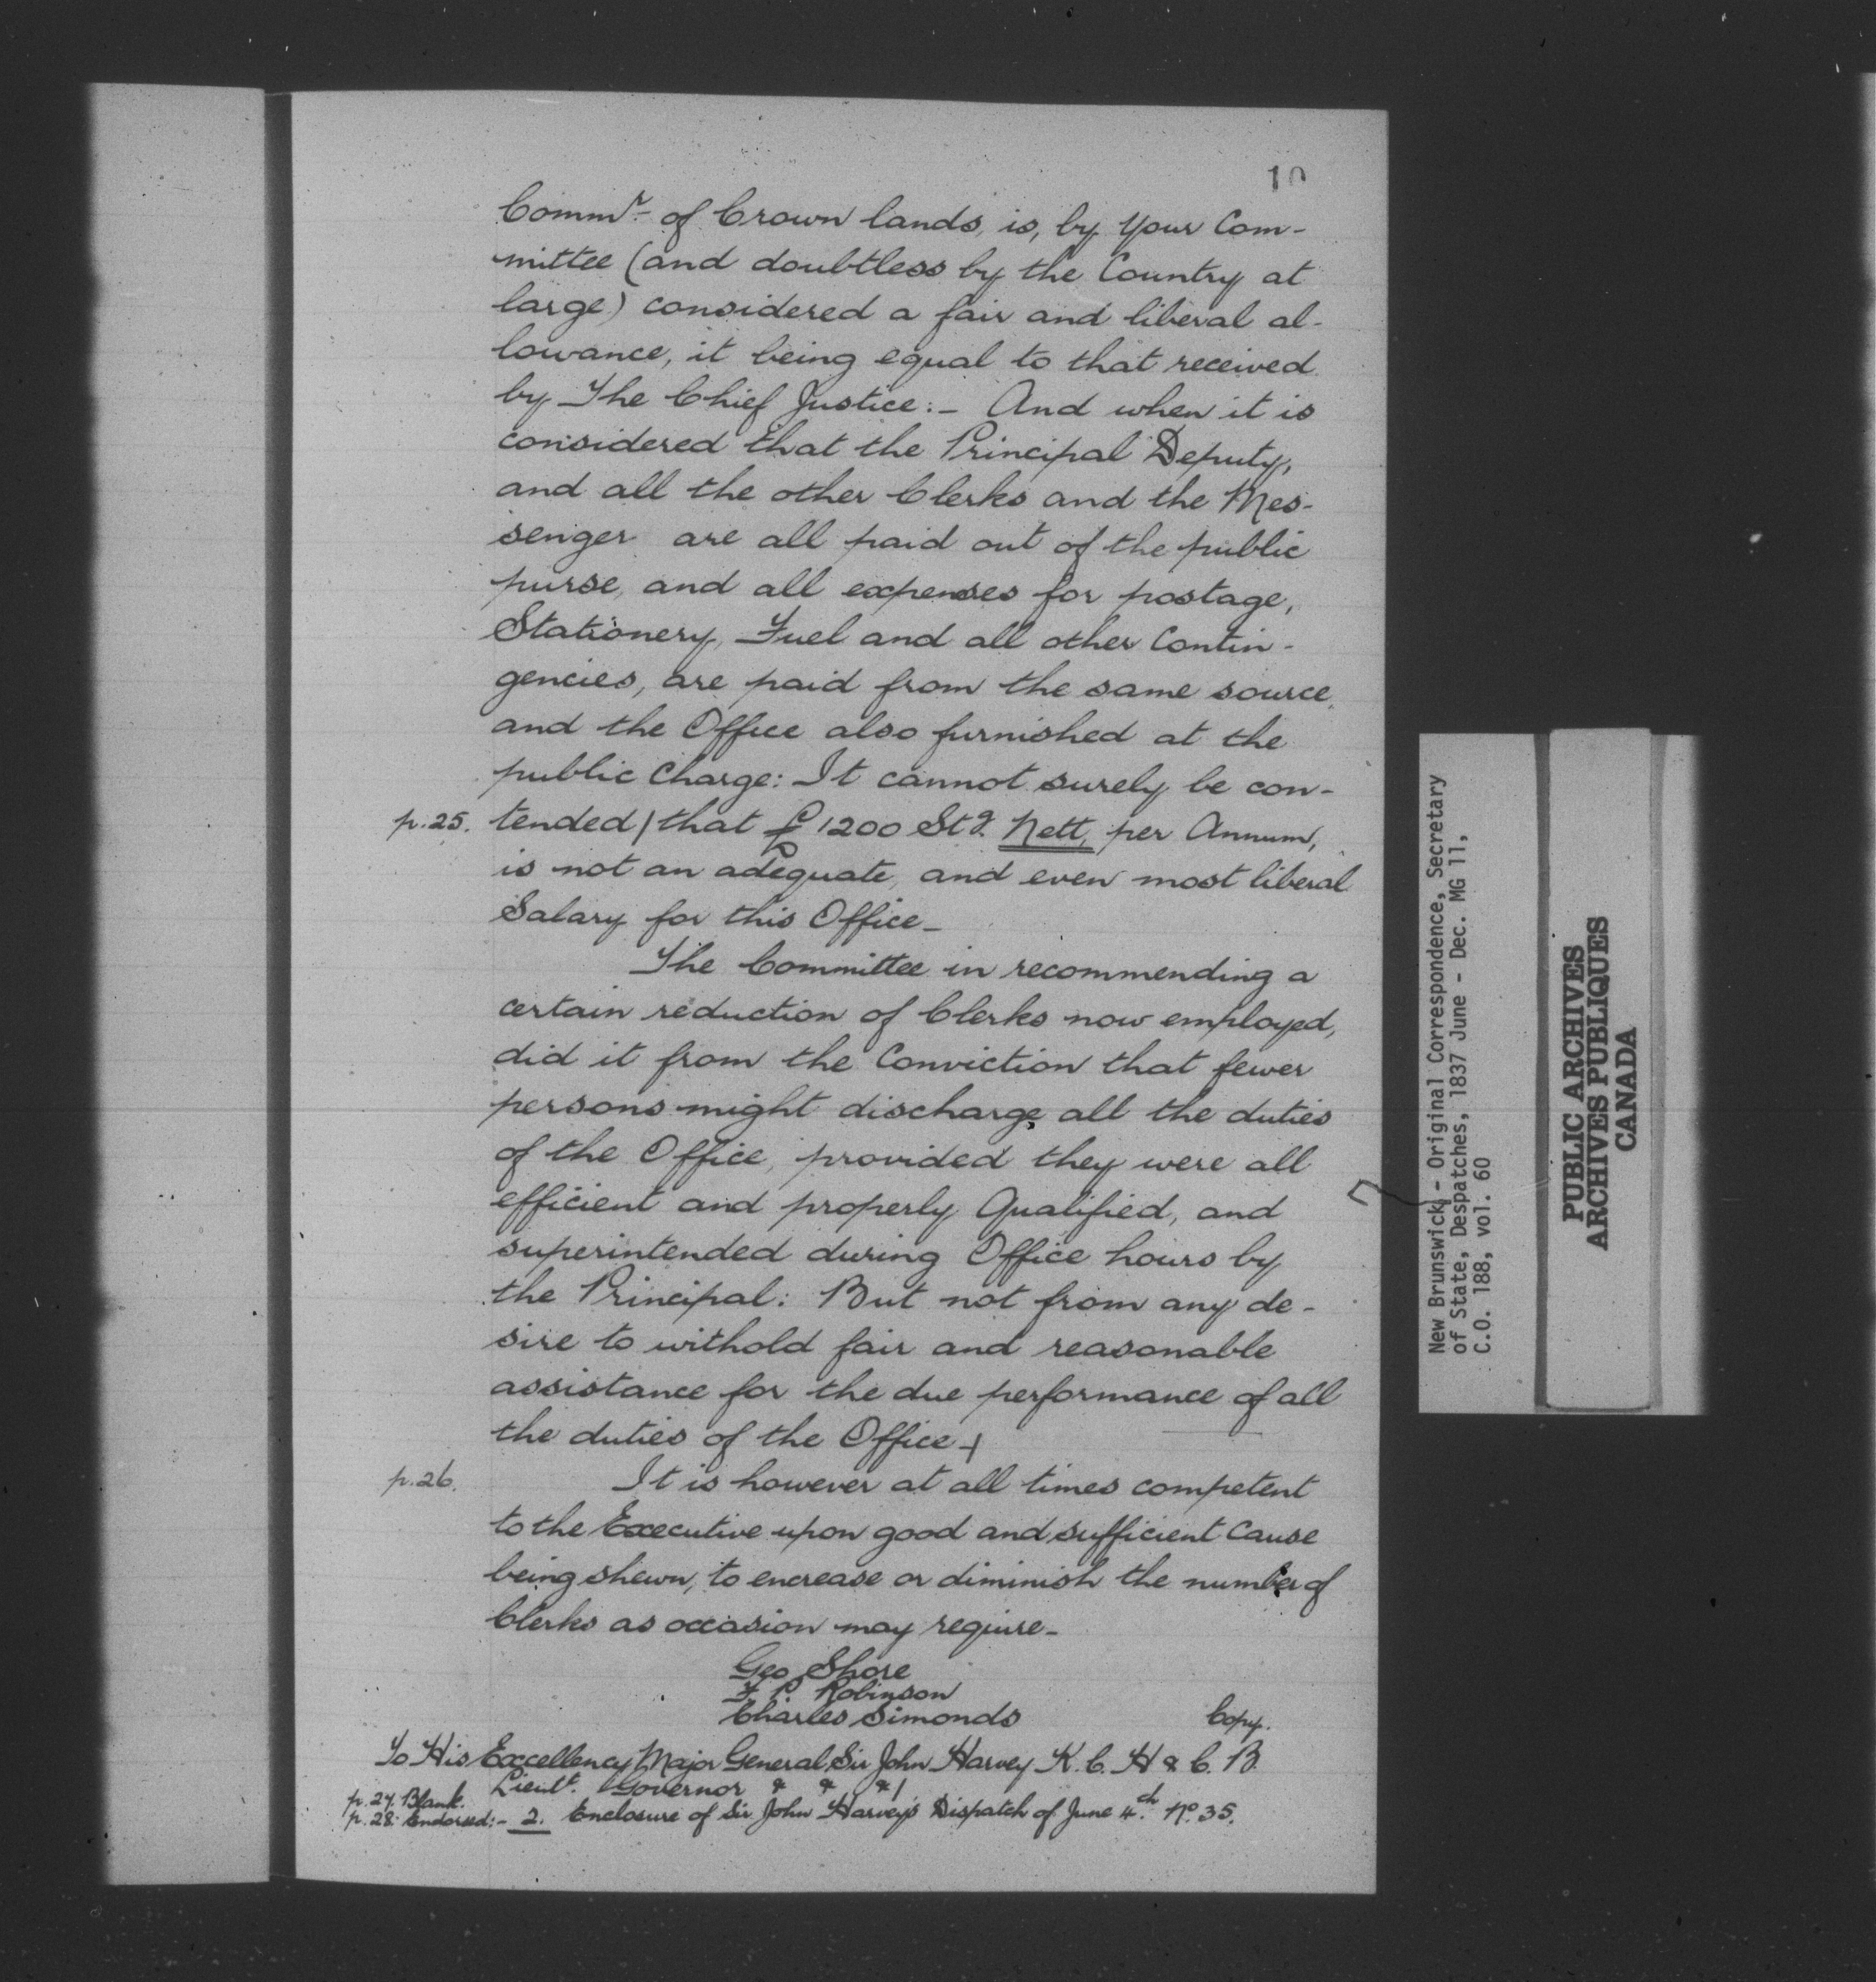 10
Commr. of Crown lands, is, by Your Com-
mittee (and doubtless by the Country at
large) considered a fair and liberal al-
lowance, it being equal to that received
by The Chief Justice:- And when it is
considered that the Principal Deputy,
and all the other Clerks and the Mes-
senger are all paid out of the public
purse, and all expenses for postage,
Stationery, Fuel and all other Contin-
gencies, are paid from the same source,
and the Office also furnished at the
public Charge: It cannot surely be con-
p.25. tended / that £1200 Stg. Nett, per Annum,
is not an adequate, and even most liberal
Salary for this Office_
The Committee in recommending a
certain reduction of Clerks now employed,
did it from the Conviction that fewer
persons might discharge all the duties
of the Office, provided they were all
efficient and properly Qualified, and
superintended during Office hours by
the Principal: But not from any de-
sire to withold fair and reasonable
assistance for the due performance of all
the duties of the Office_/
p.26. It is however at all times competent
to the Executive upon good and sufficient Cause
being shewn, to encrease or diminish the number of
Clerks as occasion may require_
Geo Shore
F. P. Robinson
Charles Simonds
Copy.
To His Excellency Major General Sir John Harvey K. C. H & C. B.
Lieut. Governor & & & /
p.27. Blank.
p.28. Endorsed:- 2. Enclosure of Sir John Harvey's Dispatch of June 4th. No. 35.
New Brunswick - Original Correspondence, Secretary
of State, Despatches, 1837 June - Dec. MG 11,
C.O. 188, vol. 60
PUBLIC ARCHIVES
ARCHIVES PUBLIQUES
CANADA